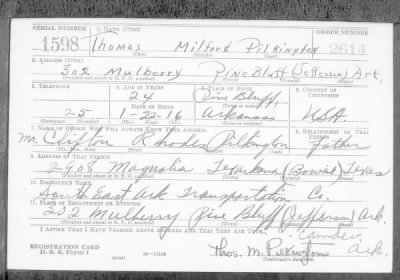 SERIAL NUMBER 1. NAME (Print) ORDER NUMBER
1598 Thomas Milford Pilkington 2614
(First) (Middle) (Last)
2. ADDRESS (Print)
302 Mulberry Pine Bluff (Jefferson) Ark.
3. TELEPHONE 4. AGE IN YEARS 5. PLACE OF BIRTH 6. COUNTRY OF CITIZENSHIP
24 Pine Bluff,
DATE OF BIRTH
25 1-22-16 Arkansas USA
7. NAME OF PERSON WHO WILL ALWAYS KNOW YOUR ADDRESS 8. RELATIONSHIP OF THAT PERSON
Mr. Clifton Rhodes Pilkington Father
9. ADDRESS OF THAT PERSON
2908 Magnolia Texarkana (Bowie) Texas
10. EMPLOYER'S NAME
South East Ark Transportation Co.
11. PLACE OF EMPLOYMENT OR BUSINESS
202 Mulberry Pine Bluff (Jefferson) Ark.
I AFFIRM THAT I HAVE VERIFIED ABOVE ANSWERS AND THAT THEY ARE TRUE.
REGISTRATION CARD
D. S. S. Form 1
Thos. M. Pilkington
Ark.